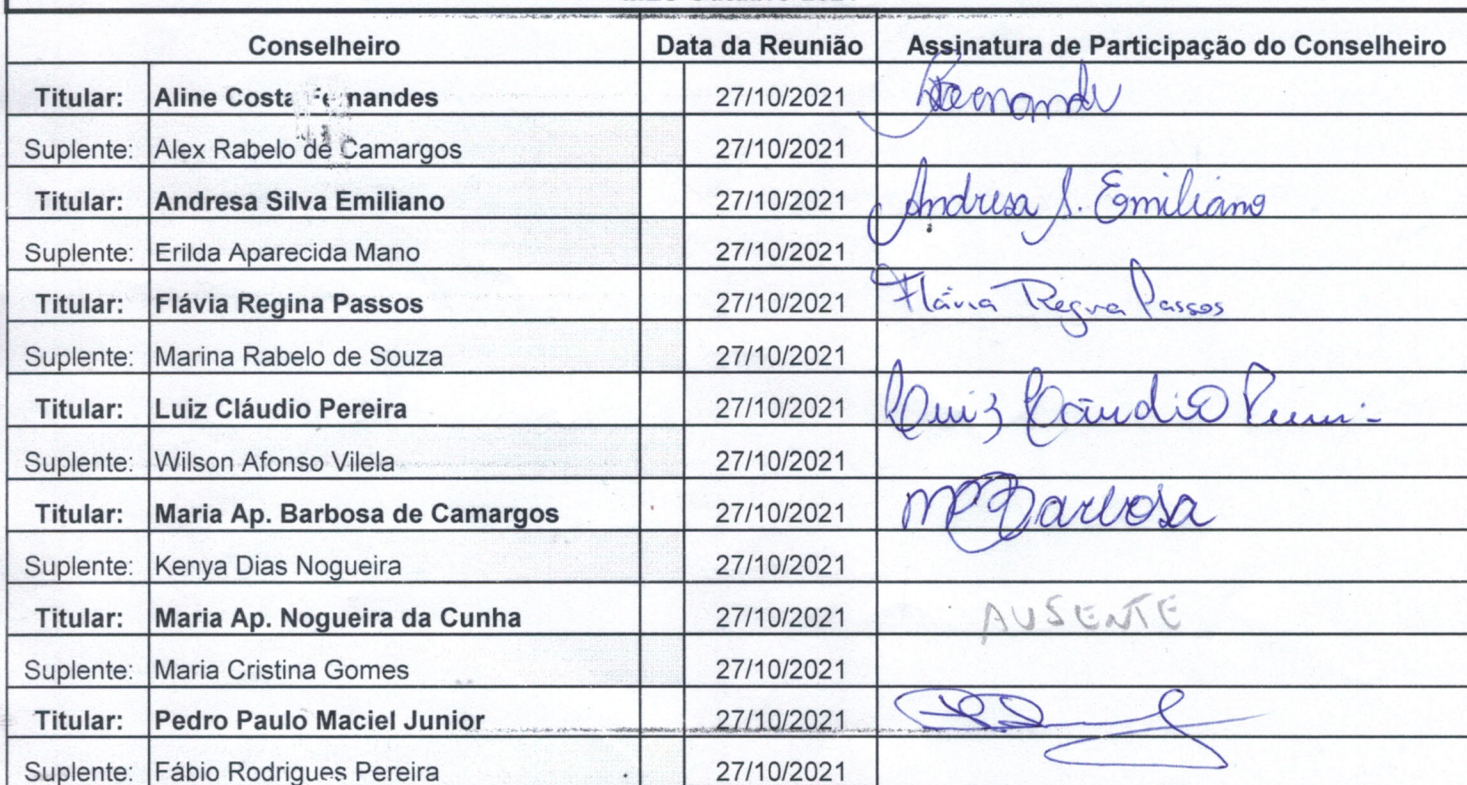 Conselheiro Data da Reunião Assinatura de Participação do Conselheiro
Titular: Aline Costa Fernandes 27/10/2021
Suplente: Alex Rabelo de Camargos 27/10/2021
Titular: Andresa Silva Emiliano 27/10/2021 Andresa S. Emiliano
Suplente: Erilda Aparecida Mano 27/10/2021
Titular: Flávia Regina Passos 27/10/2021 Flávia Regina Passos
Suplente: Marina Rabelo de Souza 27/10/2021
Titular: Luiz Cláudio Pereira 27/10/2021 Luiz Cláudio
Suplente: Wilson Afonso Vilela 27/10/2021
Titular: Maria Ap. Barbosa de Camargos 27/10/2021 Barbosa
Suplente: Kenya Dias Nogueira 27/10/2021
Titular: Maria Ap. Nogueira da Cunha 27/10/2021 AUSENTE
Suplente: Maria Cristina Gomes 27/10/2021
Titular: Pedro Paulo Maciel Junior 27/10/2021
Suplente: Fábio Rodrigues Pereira 27/10/2021